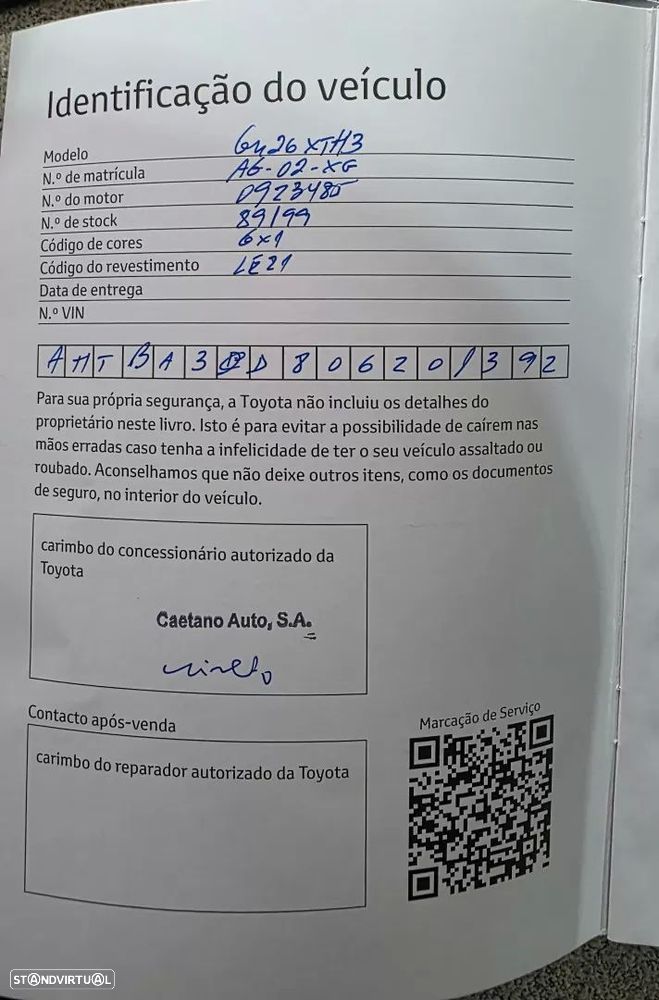 Identificação do veículo
Modelo
N.º de matrícula AG-02-XG
N.º do motor 0923485
N.º de stock 89199
Código de cores 6x1
Código do revestimento LE21
Data de entrega
N.º VIN
A H T B A 3 D 8 0 6 2 0 1 3 9 2
Para sua própria segurança, a Toyota não incluiu os detalhes do
proprietário neste livro. Isto é para evitar a possibilidade de caírem nas
mãos erradas caso tenha a infelicidade de ter o seu veículo assaltado ou
roubado. Aconselhamos que não deixe outros itens, como os documentos
de seguro, no interior do veículo.
carimbo do concessionário autorizado da
Toyota
Caetano Auto, S.A.
Contacto após-venda
carimbo do reparador autorizado da Toyota
Marcação de Serviço
STANDVIRTUAL